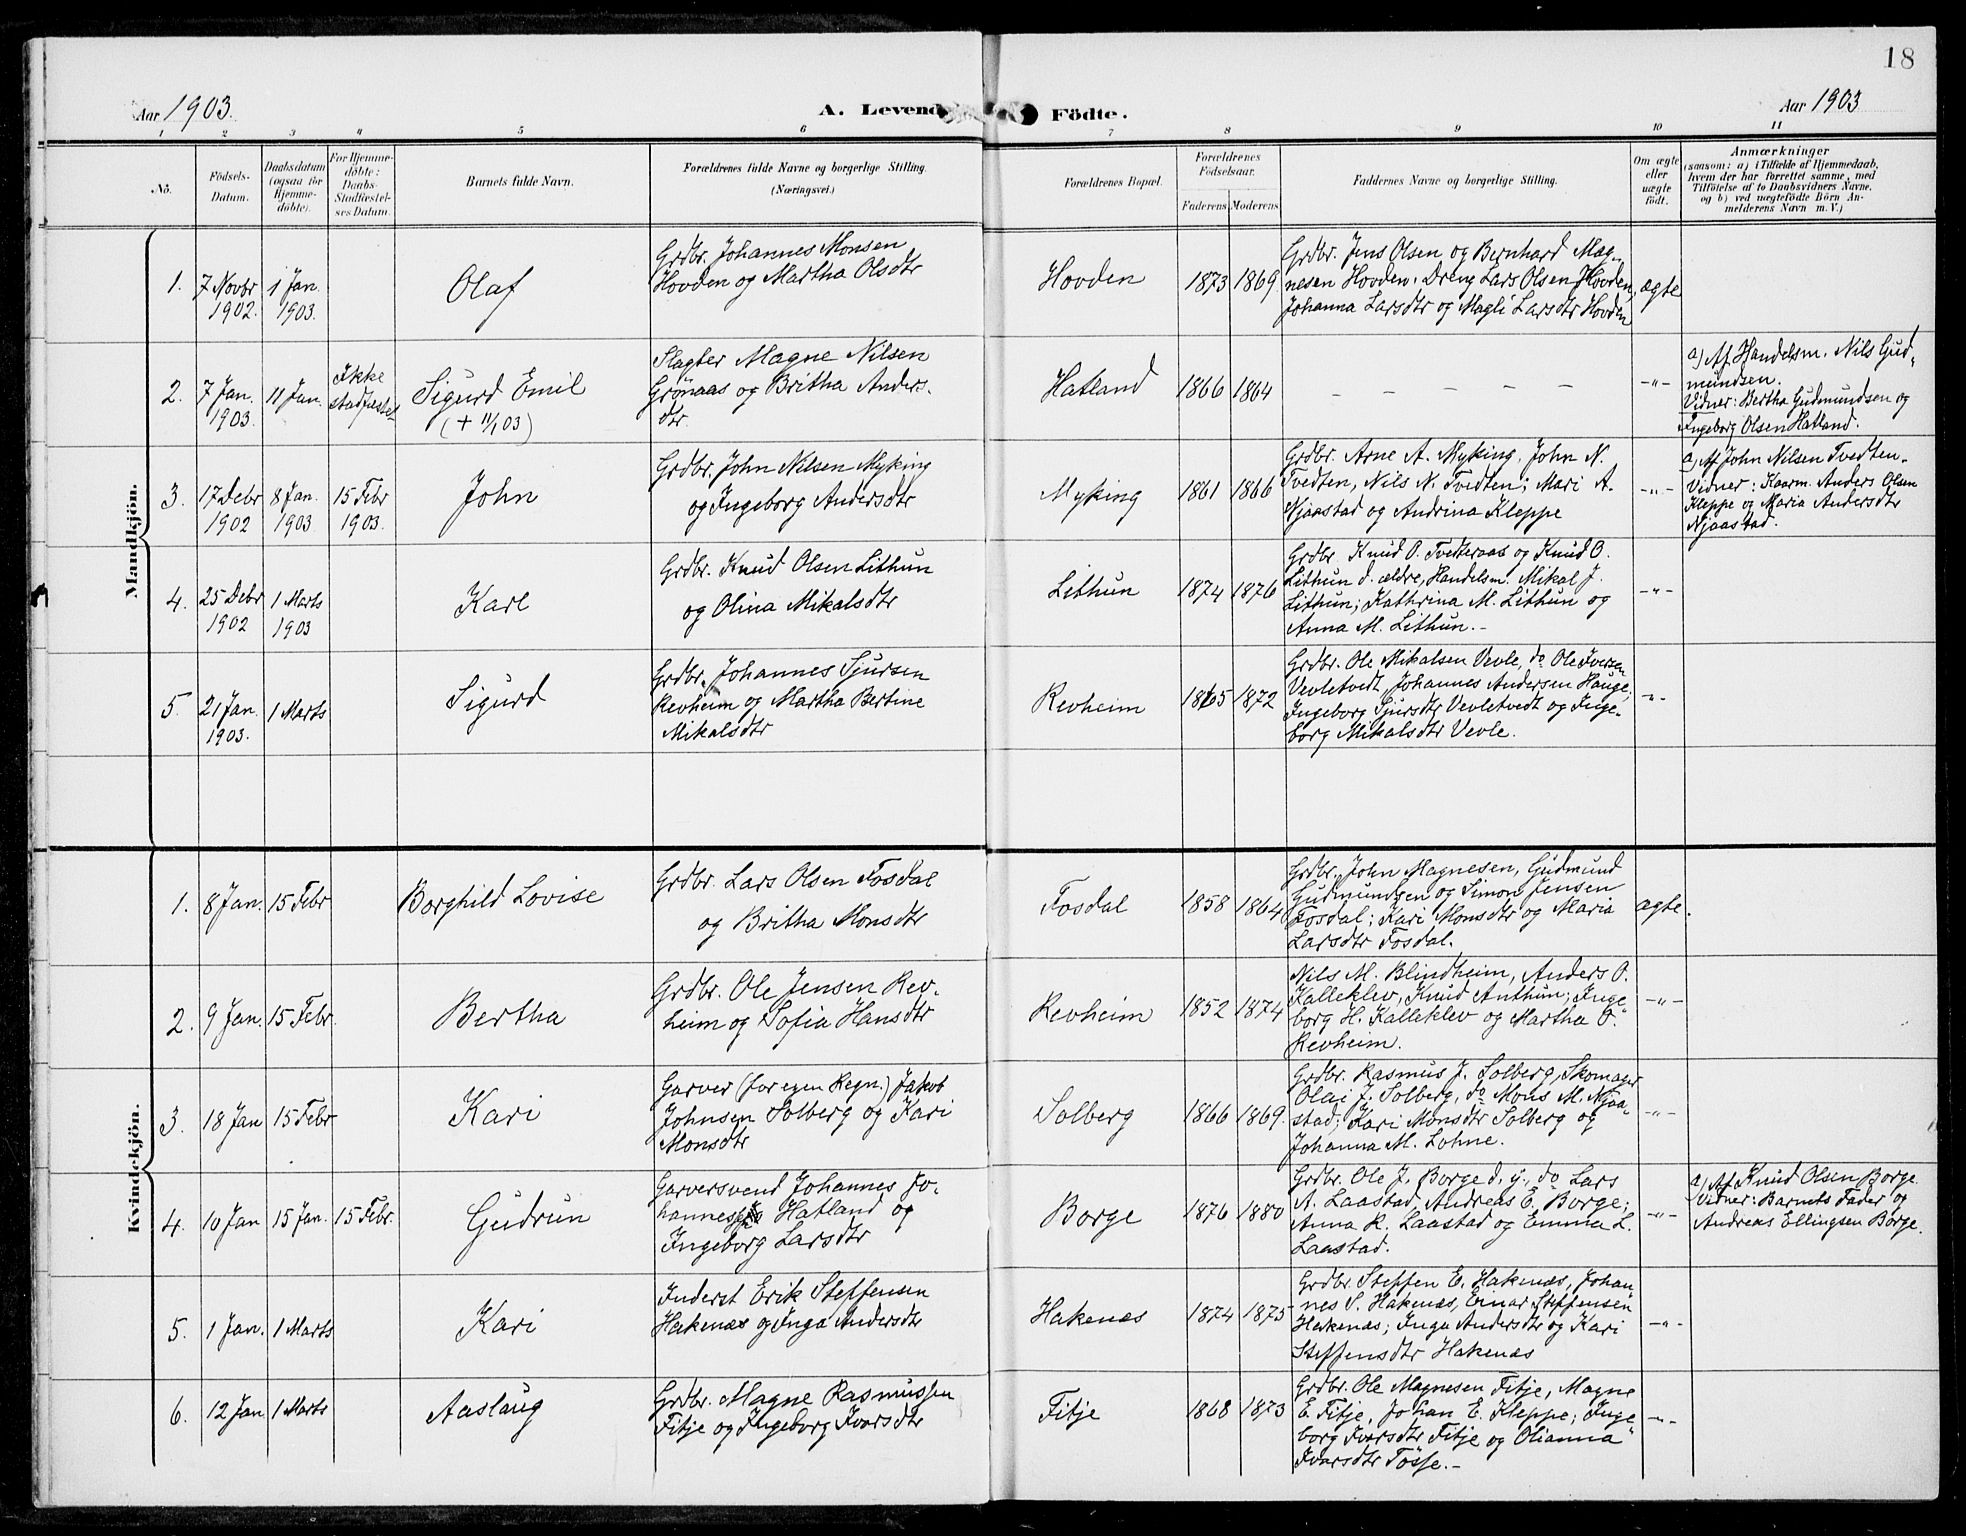 18
Aar 1903.
A. Levende
Födte.
Aar 1903
1 2 3 4 5 6 7 8 9 10 11
No.
Födsels-
Datum.
Daabsdatum
(ogsaa för
Hjemme-
döbte).
For Hjemme-
döbte:
Daabs-
Stadfæstel-
ses Datum.
Barnets fulde Navn.
Forældrenes fulde Navne og borgerlige Stilling.
(Næringsvei.)
Forældrenes Bopæl.
Forældrenes
Födselsaar.
Faderens
Moderens
Faddernes Navne og borgerlige Stilling.
Om ægte
eller
uægte
födt.
Anmærkninger
(saasom: a) i Tilfælde af Hjemmedaab,
hvem der har forrettet samme, med
Tilföielse af to Daabsvidners Navne,
og b) ved uægtefödte Börn An-
melderens Navn m. V.)
Mandkjön.
1.
7 Novbr
1902.
1 Jan.
1903.
Olaf
Grdbr. Johannes Monsen
Hovden og Martha Olsdtr
Hovden
1873
1869
Grdbr. Jens Olsen og Bernhard Mag-
nesen Hovden, Dreng Lars Olsen Hovden,
Johanna Larsdtr og Magli Larsdtr Hovden
ægte
2.
7 Jan.
1903.
11 Jan.
Ikke
stadfæstet
Sigurd Emil
(+ 11/1 03)
Slagter Magne Nilsen
Grönaas og Britha Anders-
dtr.
Hatland
1866
1864
– – – – –
–"–
a) Af Handelsm. Nils Gud-
mundsen.
Vidner: Bertha Gudmundsen og
Ingeborg Olsen Hatland.
3.
17 Debr
1902
8 Jan.
1903
15 Febr
1903.
John
Grdbr. John Nilsen Myking
og Ingeborg Andersdtr
Myking
1861
1866
Grdbr. Arne A. Myking, John N.
Tvedten, Nils N. Tvedten; Mari A.
Njaastad og Andrina Kleppe
–"–
a) Af John Nilsen Tvedten.
Vidner: Kaarm. Anders Olsen
Kleppe og Maria Andersdtr
Njaastad.
4.
25 Debr
1902
1 Marts
1903
Karl
Grdbr. Knud Olsen Lithun
og Olina Mikalsdtr
Lithun
1874
1876
Grdbr. Knud O. Tvedteraas og Knud O.
Lithun d. ældre, Handelsm. Mikal J.
Lithun; Kathrina M. Lithun og
Anna M. Lithun.–
–"–
5.
21 Jan.
1903.
1 Marts
Sigurd
Grdbr. Johannes Sjursen
Revheim og Martha Bertine
Mikalsdtr
Revheim
1865
1872
Grdbr. Ole Mikalsen Vevle, do Ole Iversen
Vevletvedt, Johannes Andersen Hauge;
Ingeborg Sjursdtr Vevletvedt og Inge-
borg Mikalsdtr Vevle.
–"–
Kvindekjön.
1.
8 Jan.
15 Febr
Borghild Lovise
Grdbr. Lars Olsen Fosdal
og Britha Monsdtr
Fosdal
1858
1864
Grdbr. John Magnesen, Gudmund
Gudmundsen og Simon Jensen
Fosdal; Kari Monsdtr og Maria
Larsdtr Fosdal.
ægte.
2.
9 Jan.
15 Febr.
Bertha
Grdbr. Ole Jensen Rev-
heim og Sofia Hansdtr
Revheim
1852
1874
Nils M. Blindheim, Anders O.
Kalleklev, Knud Anthun; Inge-
borg H. Kalleklev og Martha O.
Revheim.
–"–
3.
18 Jan
15 Febr
Kari
Garver (for egen Regn.) Jakob
Johnsen Solberg og Kari
Monsdtr
Solberg
1866
1869.
Grdbr. Rasmus J. Solberg, Skomager
Olai J. Solberg, do Mons M. Njaa-
stad; Kari Monsdtr Solberg og
Johanna M. Lohne.
–"–
4.
10 Jan
15 Jan.
15 Febr.
Gudrun
Garversvend Johannes Jo-
hannessen Hatland og
Ingeborg Larsdtr
Borge
1876
1880
Grdbr. Ole J. Borge d. y., do Lars
A. Laastad, Andreas E. Borge;
Anna K. Laastad og Emma L.
Laastad.
–"–
a) Af Knud Olsen Borge.
Vidner: Barnets Fader og
Andreas Ellingsen Borge.
5.
1 Jan.
1 Marts
Kari
Inderst Erik Steffensen
Hakenæs og Inga Andersdtr
Hakenæs
1874
1875
Grdbr Steffen E. Hakenæs, Johan-
nes S. Hakenæs, Einar Steffensen
Hakenæs; Inga Andersdtr og Kari
Steffensdtr Hakenæs
–"–
6.
12 Jan
1 Marts
Aaslaug
Grdbr. Magne Rasmussen
Fitje og Ingeborg Ivarsdtr
Fitje
1868
1873
Grdbr. Ole Magnesen Fitje, Magne
E. Fitje, Johan E. Kleppe; Inge-
borg Ivarsdtr Fitje og Olianna
Ivarsdtr Tösse.–
–"–